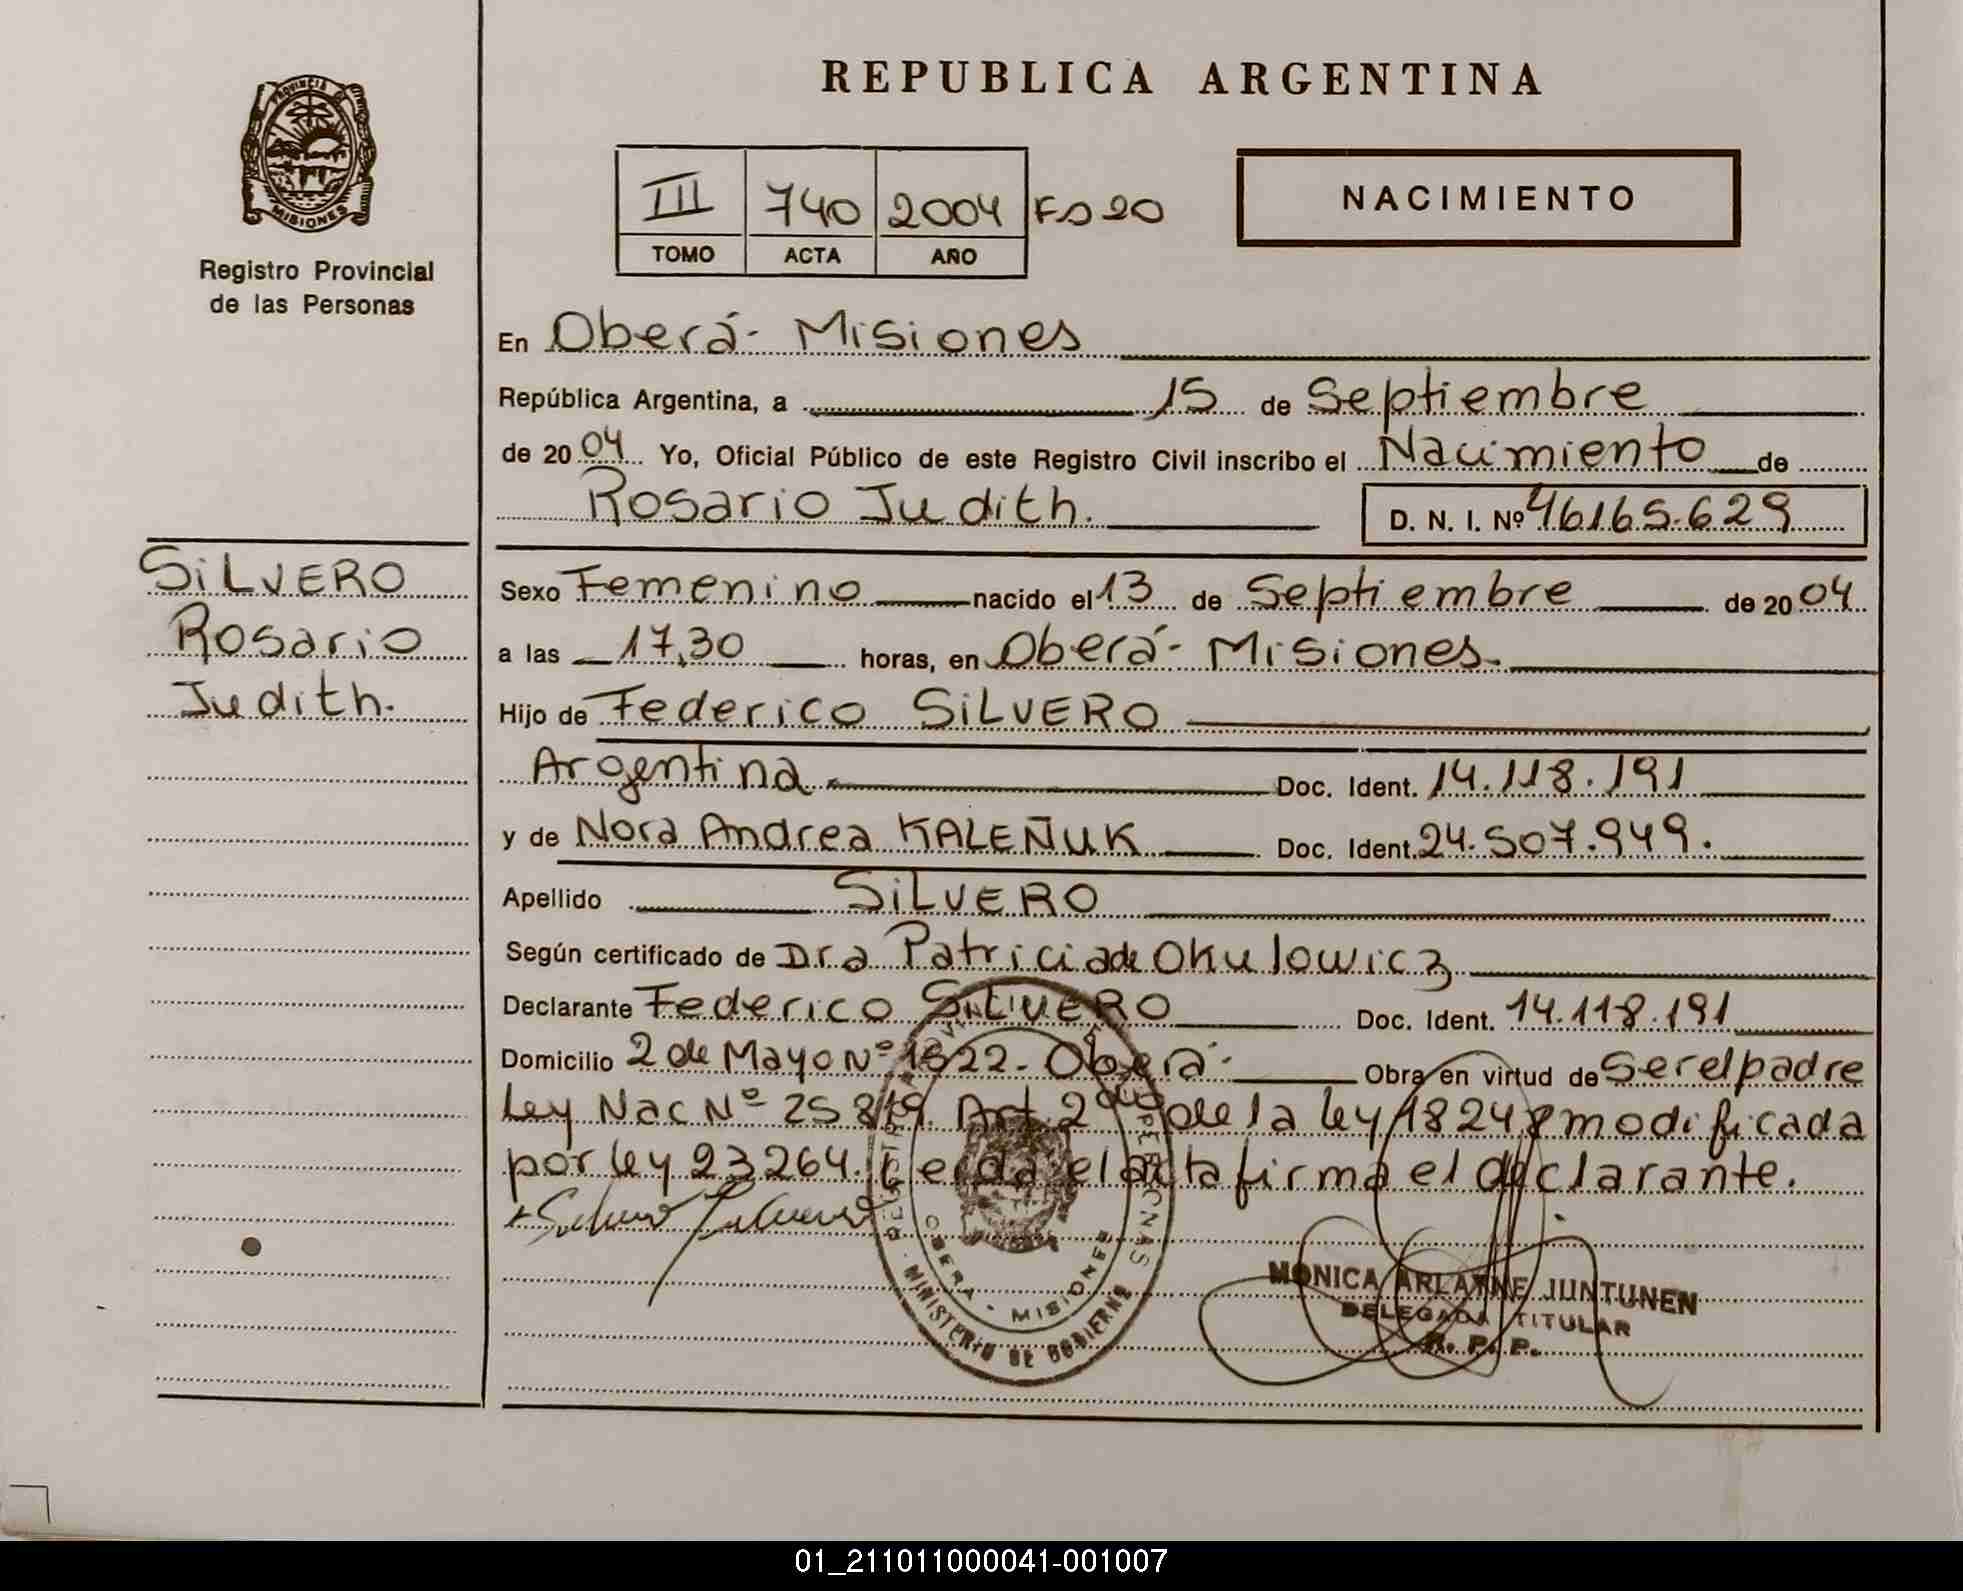 REPUBLICA ARGENTINA
PROVINCIA
MISIONES
Registro Provincial
de las Personas
III 740 2004 Fo 20
TOMO ACTA AÑO
NACIMIENTO
En Oberá - Misiones
República Argentina, a 15 de Septiembre
de 2004 Yo, Oficial Público de este Registro Civil inscribo el Nacimiento de
Rosario Judith. D. N. I. Nº 46165.629
SiLVERO
Rosario
Judith.
Sexo Femenino nacido el 13 de Septiembre de 2004
a las 17,30 horas, en Oberá - Misiones.
Hijo de Federico SiLVERO
Argentina Doc. Ident. 14.118.191
y de Nora Andrea KALEÑUK Doc. Ident. 24.507.949.
Apellido SiLVERO
Según certificado de Dra Patricia de Okulowicz
Declarante Federico SiLVERO Doc. Ident. 14.118.191
Domicilio 2 de Mayo Nº 1822 - Oberá - Obra en virtud de Ser el padre
Ley Nac Nº 25819. Art 2º de la ley 18248 modificada
por ley 23264. Leida el acta firma el declarante.
OBERA - MISIONES
MINISTERIO DE GOBIERNO
MONICA ARLAYNE JUNTUNEN
DELEGADA TITULAR
R. P. P.
01_211011000041-001007